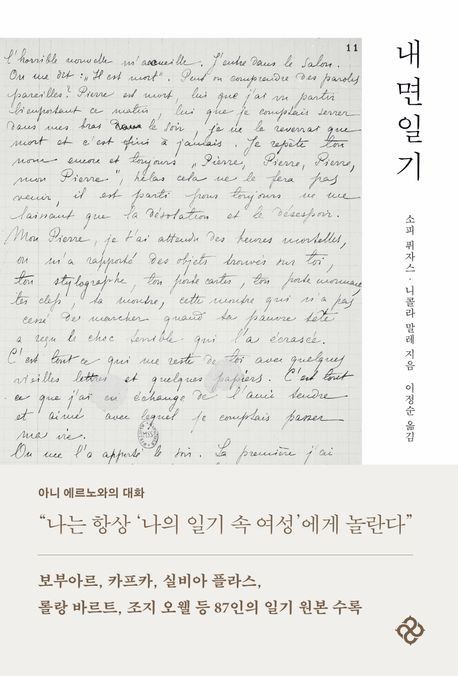 11
l'horrible nouvelle m'accueille. J'entre dans le salon.
On me dit : „Il est mort". Peut on comprendre des paroles
pareilles? Pierre est mort, lui que j'ai vu partir
bien portant ce matin, lui que je comptais serrer
dans mes bras le soir, je ne le reverrai que
mort et c'est fini à jamais. Je repète ton
nom encore et toujours „Pierre, Pierre, Pierre,
mon Pierre", hélas cela ne le fera pas
venir, il est parti pour toujours ne me
laissant que la désolation et le désespoir.
Mon Pierre, je t'ai attendu des heures mortelles,
on m'a rapporté des objets trouvés sur toi,
ton stylographe, ton porte cartes, ton porte monnaie,
tes clefs, ta montre, cette montre qui n'a pas
cessé de marcher quand ta pauvre tête
a reçu le choc terrible qui l'a écrasée.
C'est tout ce qui me reste de toi avec quelques
vieilles lettres et quelques papiers. C'est tout
ce que j'ai en échange de l'ami tendre
et aimé avec lequel je comptais passer
ma vie.
On me l'a apporté le soir. La première j'ai
내면일기
소피 퓌자스 · 니콜라 말레 지음
이정순 옮김
아니 에르노와의 대화
“나는 항상 ‘나의 일기 속 여성’에게 놀란다”
보부아르, 카프카, 실비아 플라스,
롤랑 바르트, 조지 오웰 등 87인의 일기 원본 수록